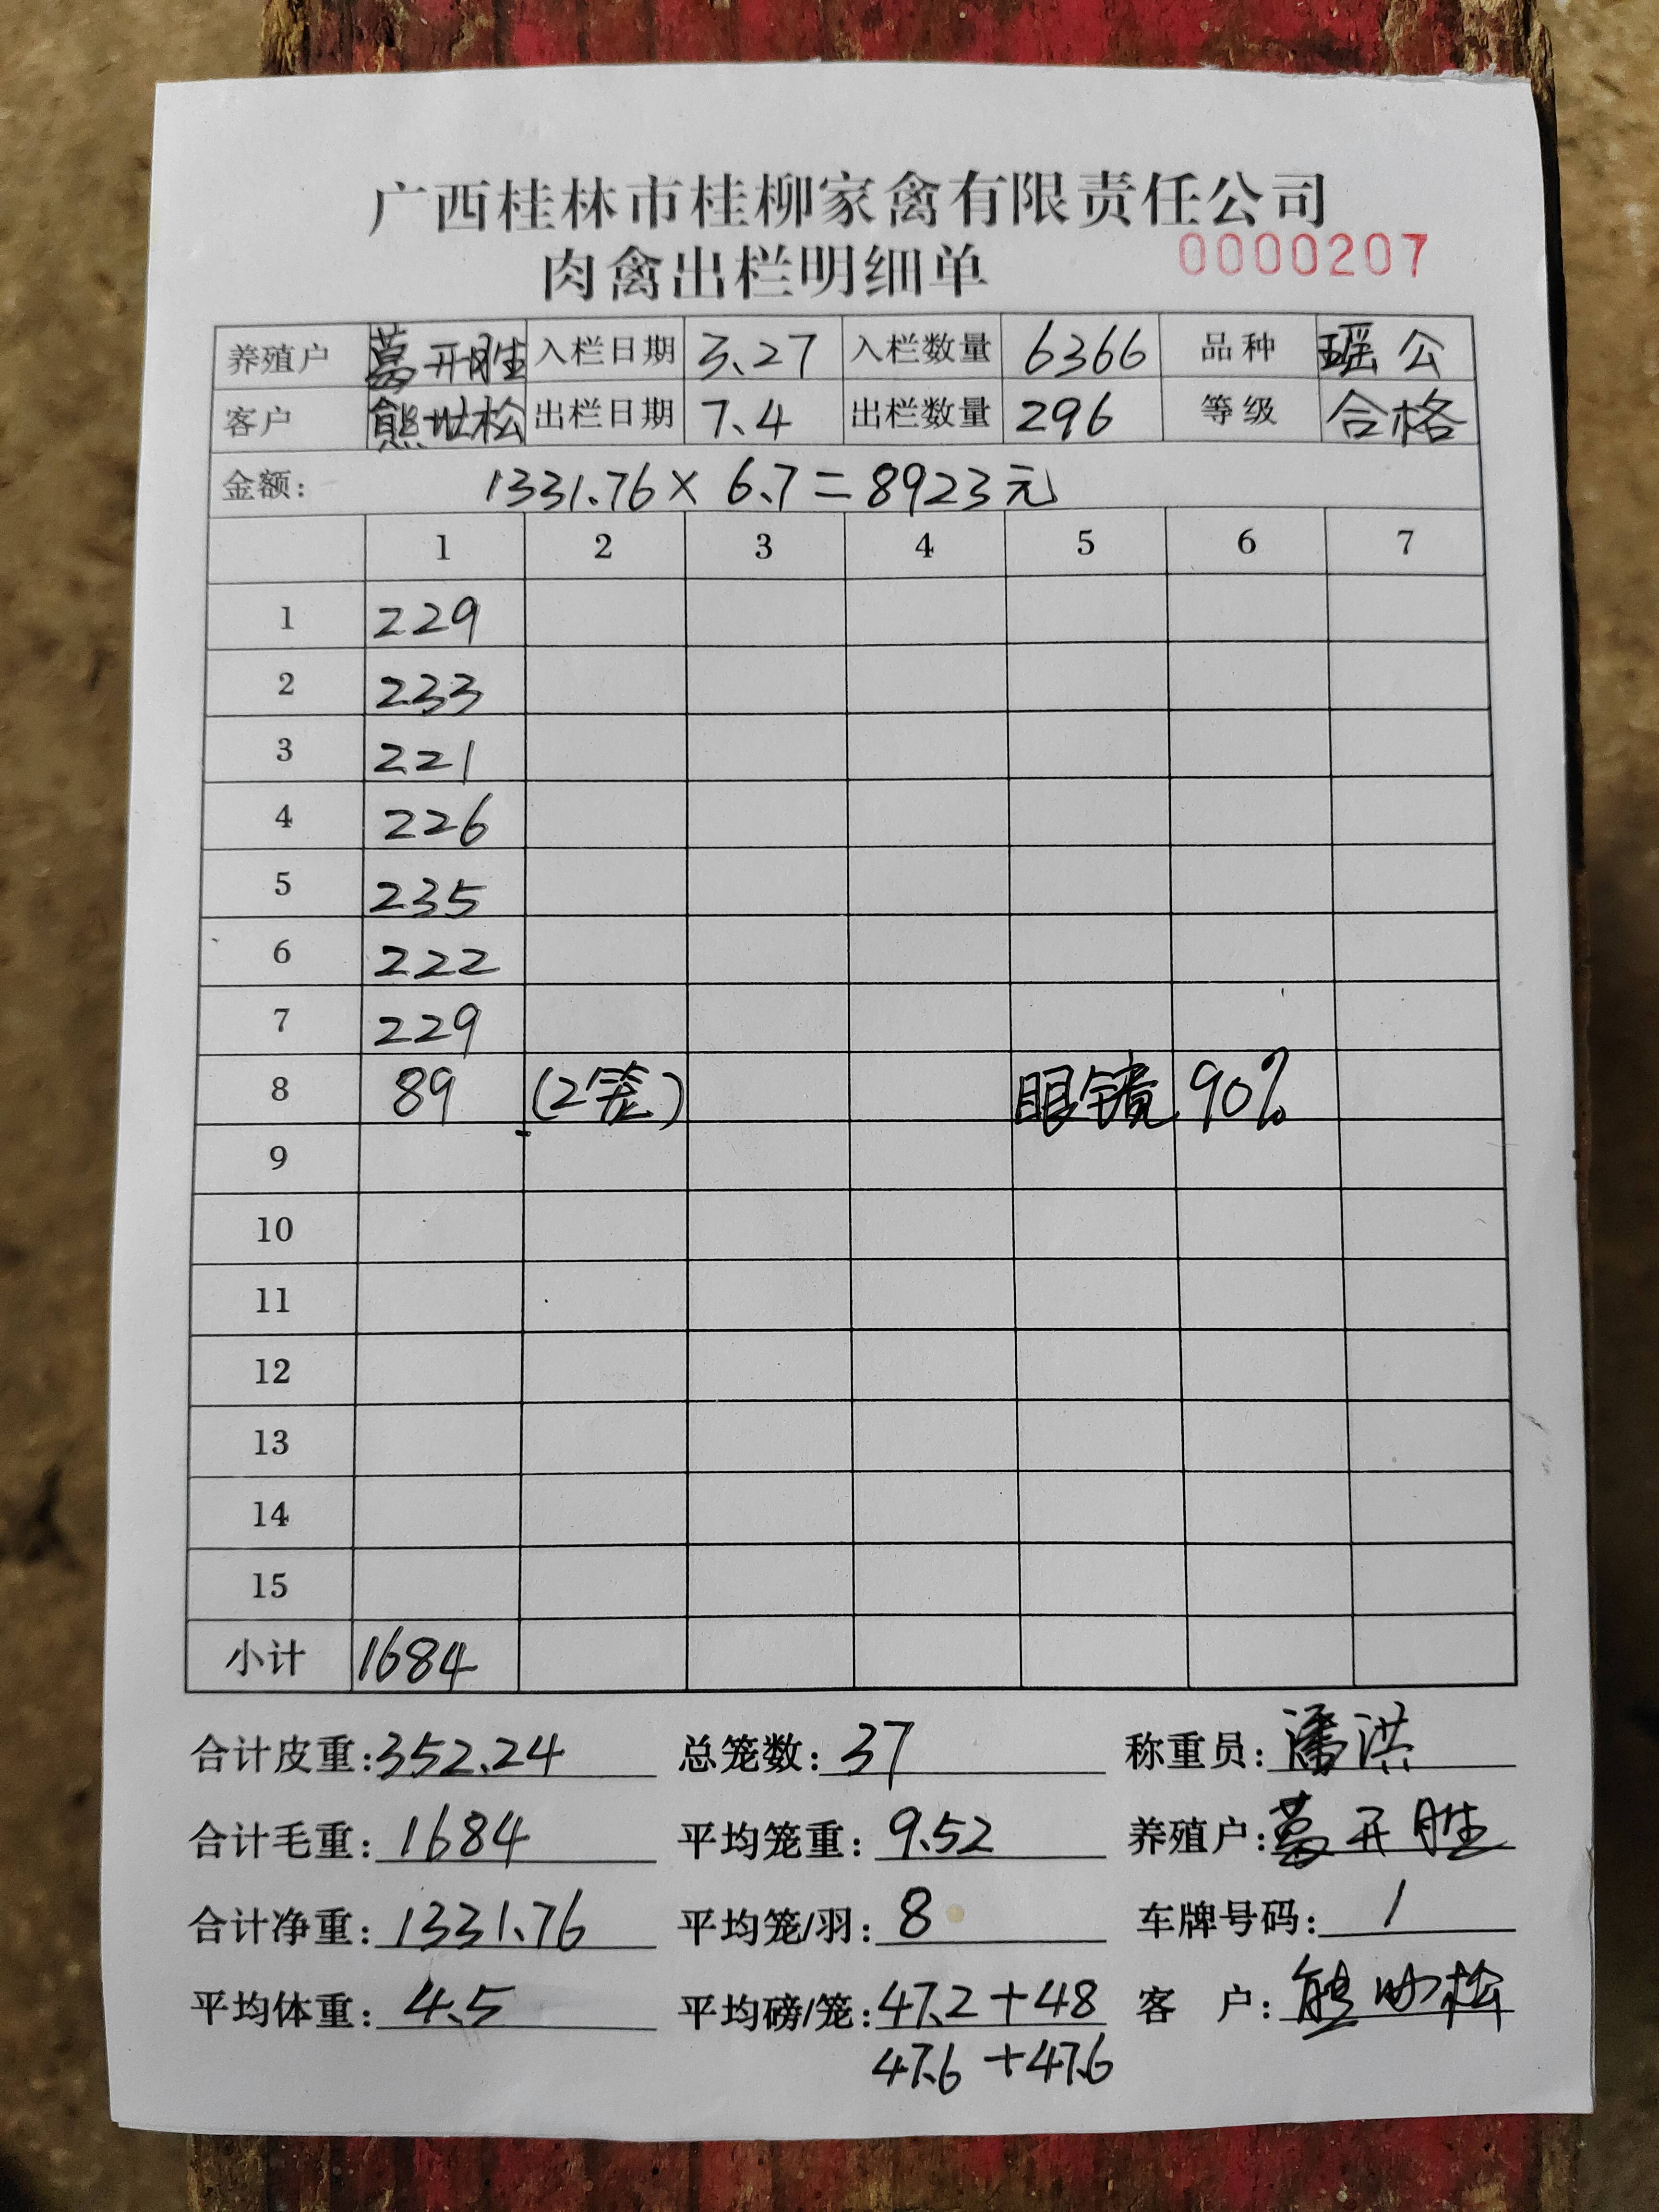 广西桂林市桂柳家禽有限责任公司
肉禽出栏明细单 0000207
养殖户 葛开胜 入栏日期 3.27 入栏数量 6366 品种 瑶公
客户 熊 松 出栏日期 7.4 出栏数量 296 等级 合格
金额: 1331.76×6.7=8923元
1 2 3 4 5 6 7
1 229
2 233
3 221
4 226
5 235
6 222
7 229
8 89 (2笼) 眼镜 90%
9
10
11
12
13
14
15
小计 1684
合计皮重:352.24 总笼数:37 称重员:潘洪
合计毛重:1684 平均笼重:9.52 养殖户:葛开胜
合计净重:1331.76 平均笼/羽:8 车牌号码:1
平均体重:4.5 平均磅/笼:47.2+48 客 户:熊 松
47.6+47.6